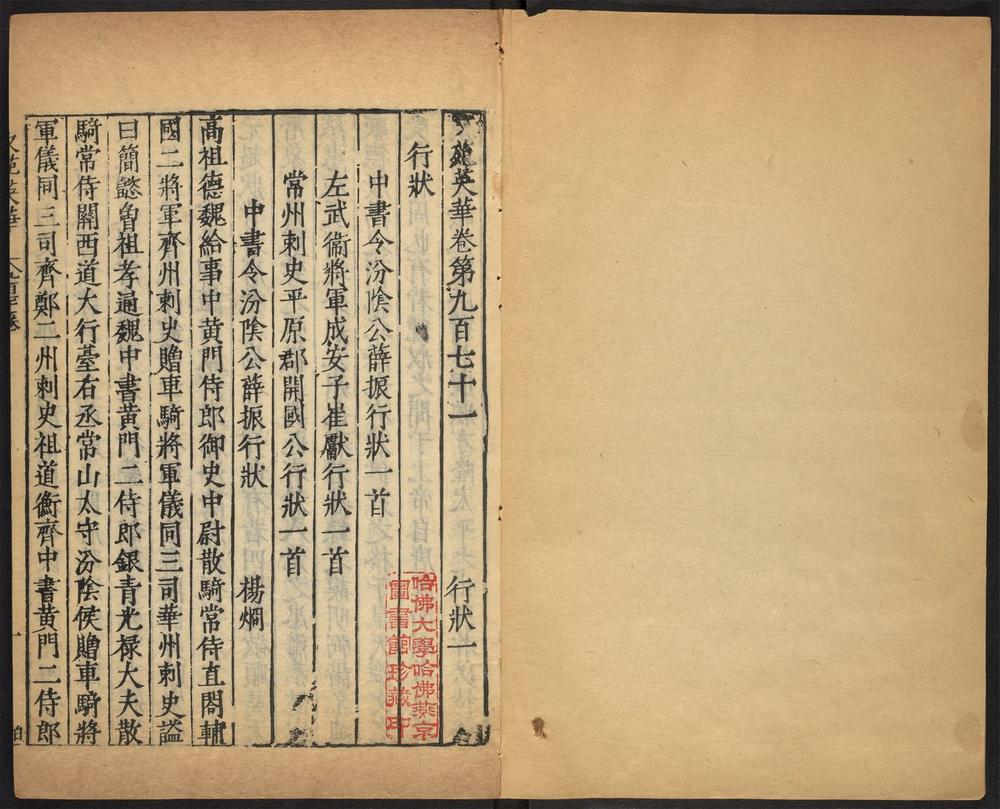 文苑英華卷第九百七十一　行狀一
行狀
中書令汾陰公薛振行狀一首
左武衞將軍成安子崔獻行狀一首
常州刺史平原郡開國公行狀一首
中書令汾陰公薛振行狀　楊烱
高祖德魏給事中黄門侍郎御史中尉散騎常侍直閤輔
國二將軍齊州刺史贈車騎將軍儀同三司華州刺史謚
曰簡懿魯祖孝通魏中書黄門二侍郎銀青光禄大夫散
騎常侍關西道大行臺右丞常山太守汾陰侯贈車騎將
軍儀同三司齊鄭二州刺史祖道衡齊中書黄門二侍郎
文苑英華
一
哈佛大學哈佛燕京
圖書館珍藏印